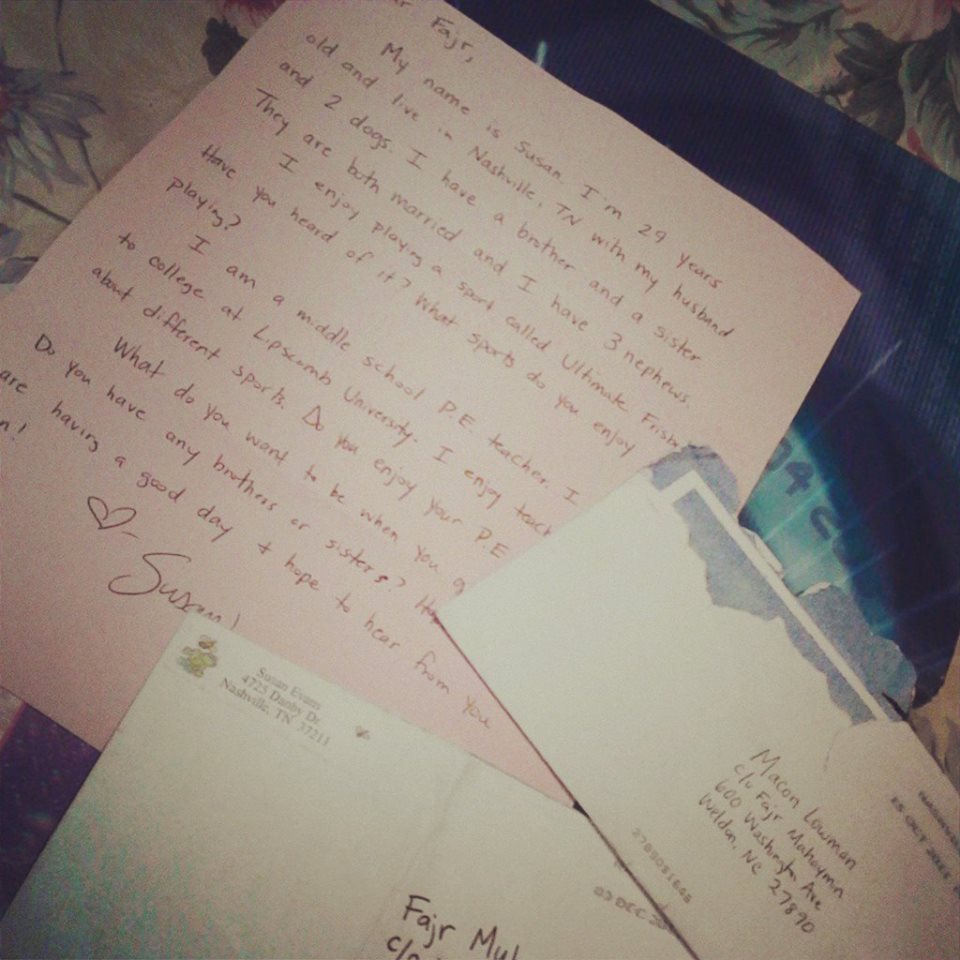 Fajr,
My name is Susan. I'm 29 years
old and live in Nashville, TN with my husband
and 2 dogs. I have a brother and a sister
They are both married and I have 3 nephews.
I enjoy playing a sport called Ultimate Frisb
Have you heard of it? What sports do you enjoy
playing?
I am a middle school P.E. teacher. I
to college at Lipscomb University. I enjoy teach
about different sports. Do you enjoy your P.E
What do you want to be when you g
Do you have any brothers or sisters? Ho
are having a good day + hope to hear from you
n!
Susan!
Susan Evans
4725 Danby Dr.
Nashville, TN 37211
Fajr Muh
c/o
Macon Lowman
c/o Fajr Mahaymn
600 Washington Ave
Weldon, NC 27890
25 OCT
02 DEC